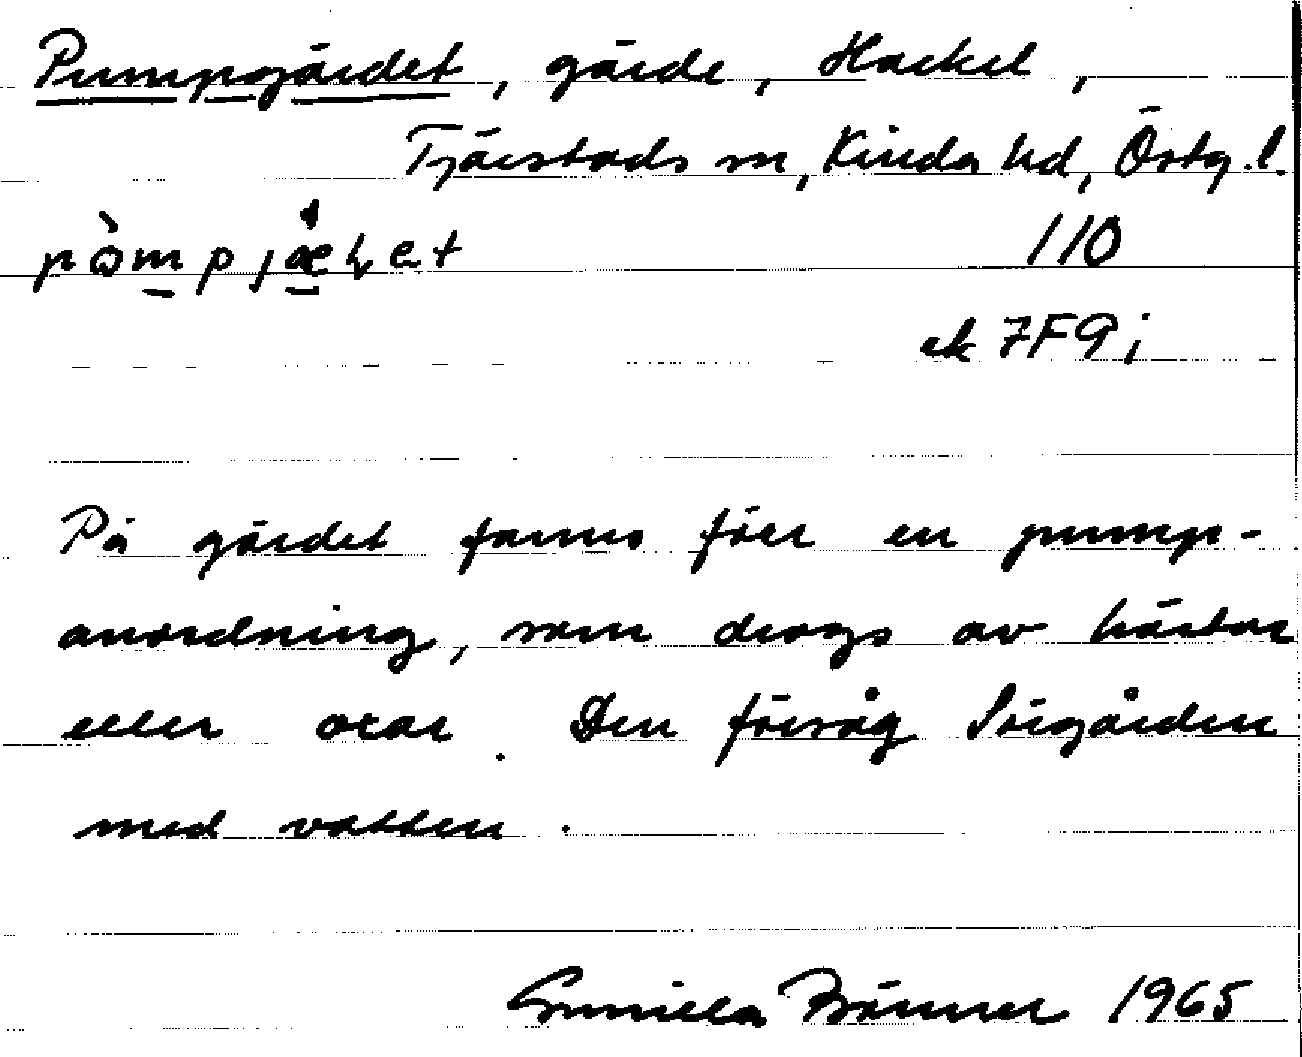 Pumpgärdet, gärde, Hackel,
Tjärstads sn, Kinda hd, Östg.l.
110
ek 7F9i
På gärdet fanns förr en pump-
anordning, som drogs av hästar
eller oxar. Den försåg Sörgården
med vatten.
Gunilla 1965